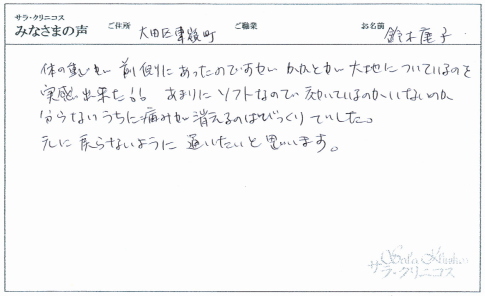 サラ・クリニコス
みなさまの声 ご住所 大田区東嶺町 ご職業 お名前 鈴木 子
体の重心が前側にあったのですが かかとが大地についているのを
実感出来た!! あまりにソフトなので 効いているのかいないのか
分らないうちに痛みが消えるのはびっくりでした。
元に戻らないように 通いたいと思います。
Sara Klinikos
サラ・クリニコス